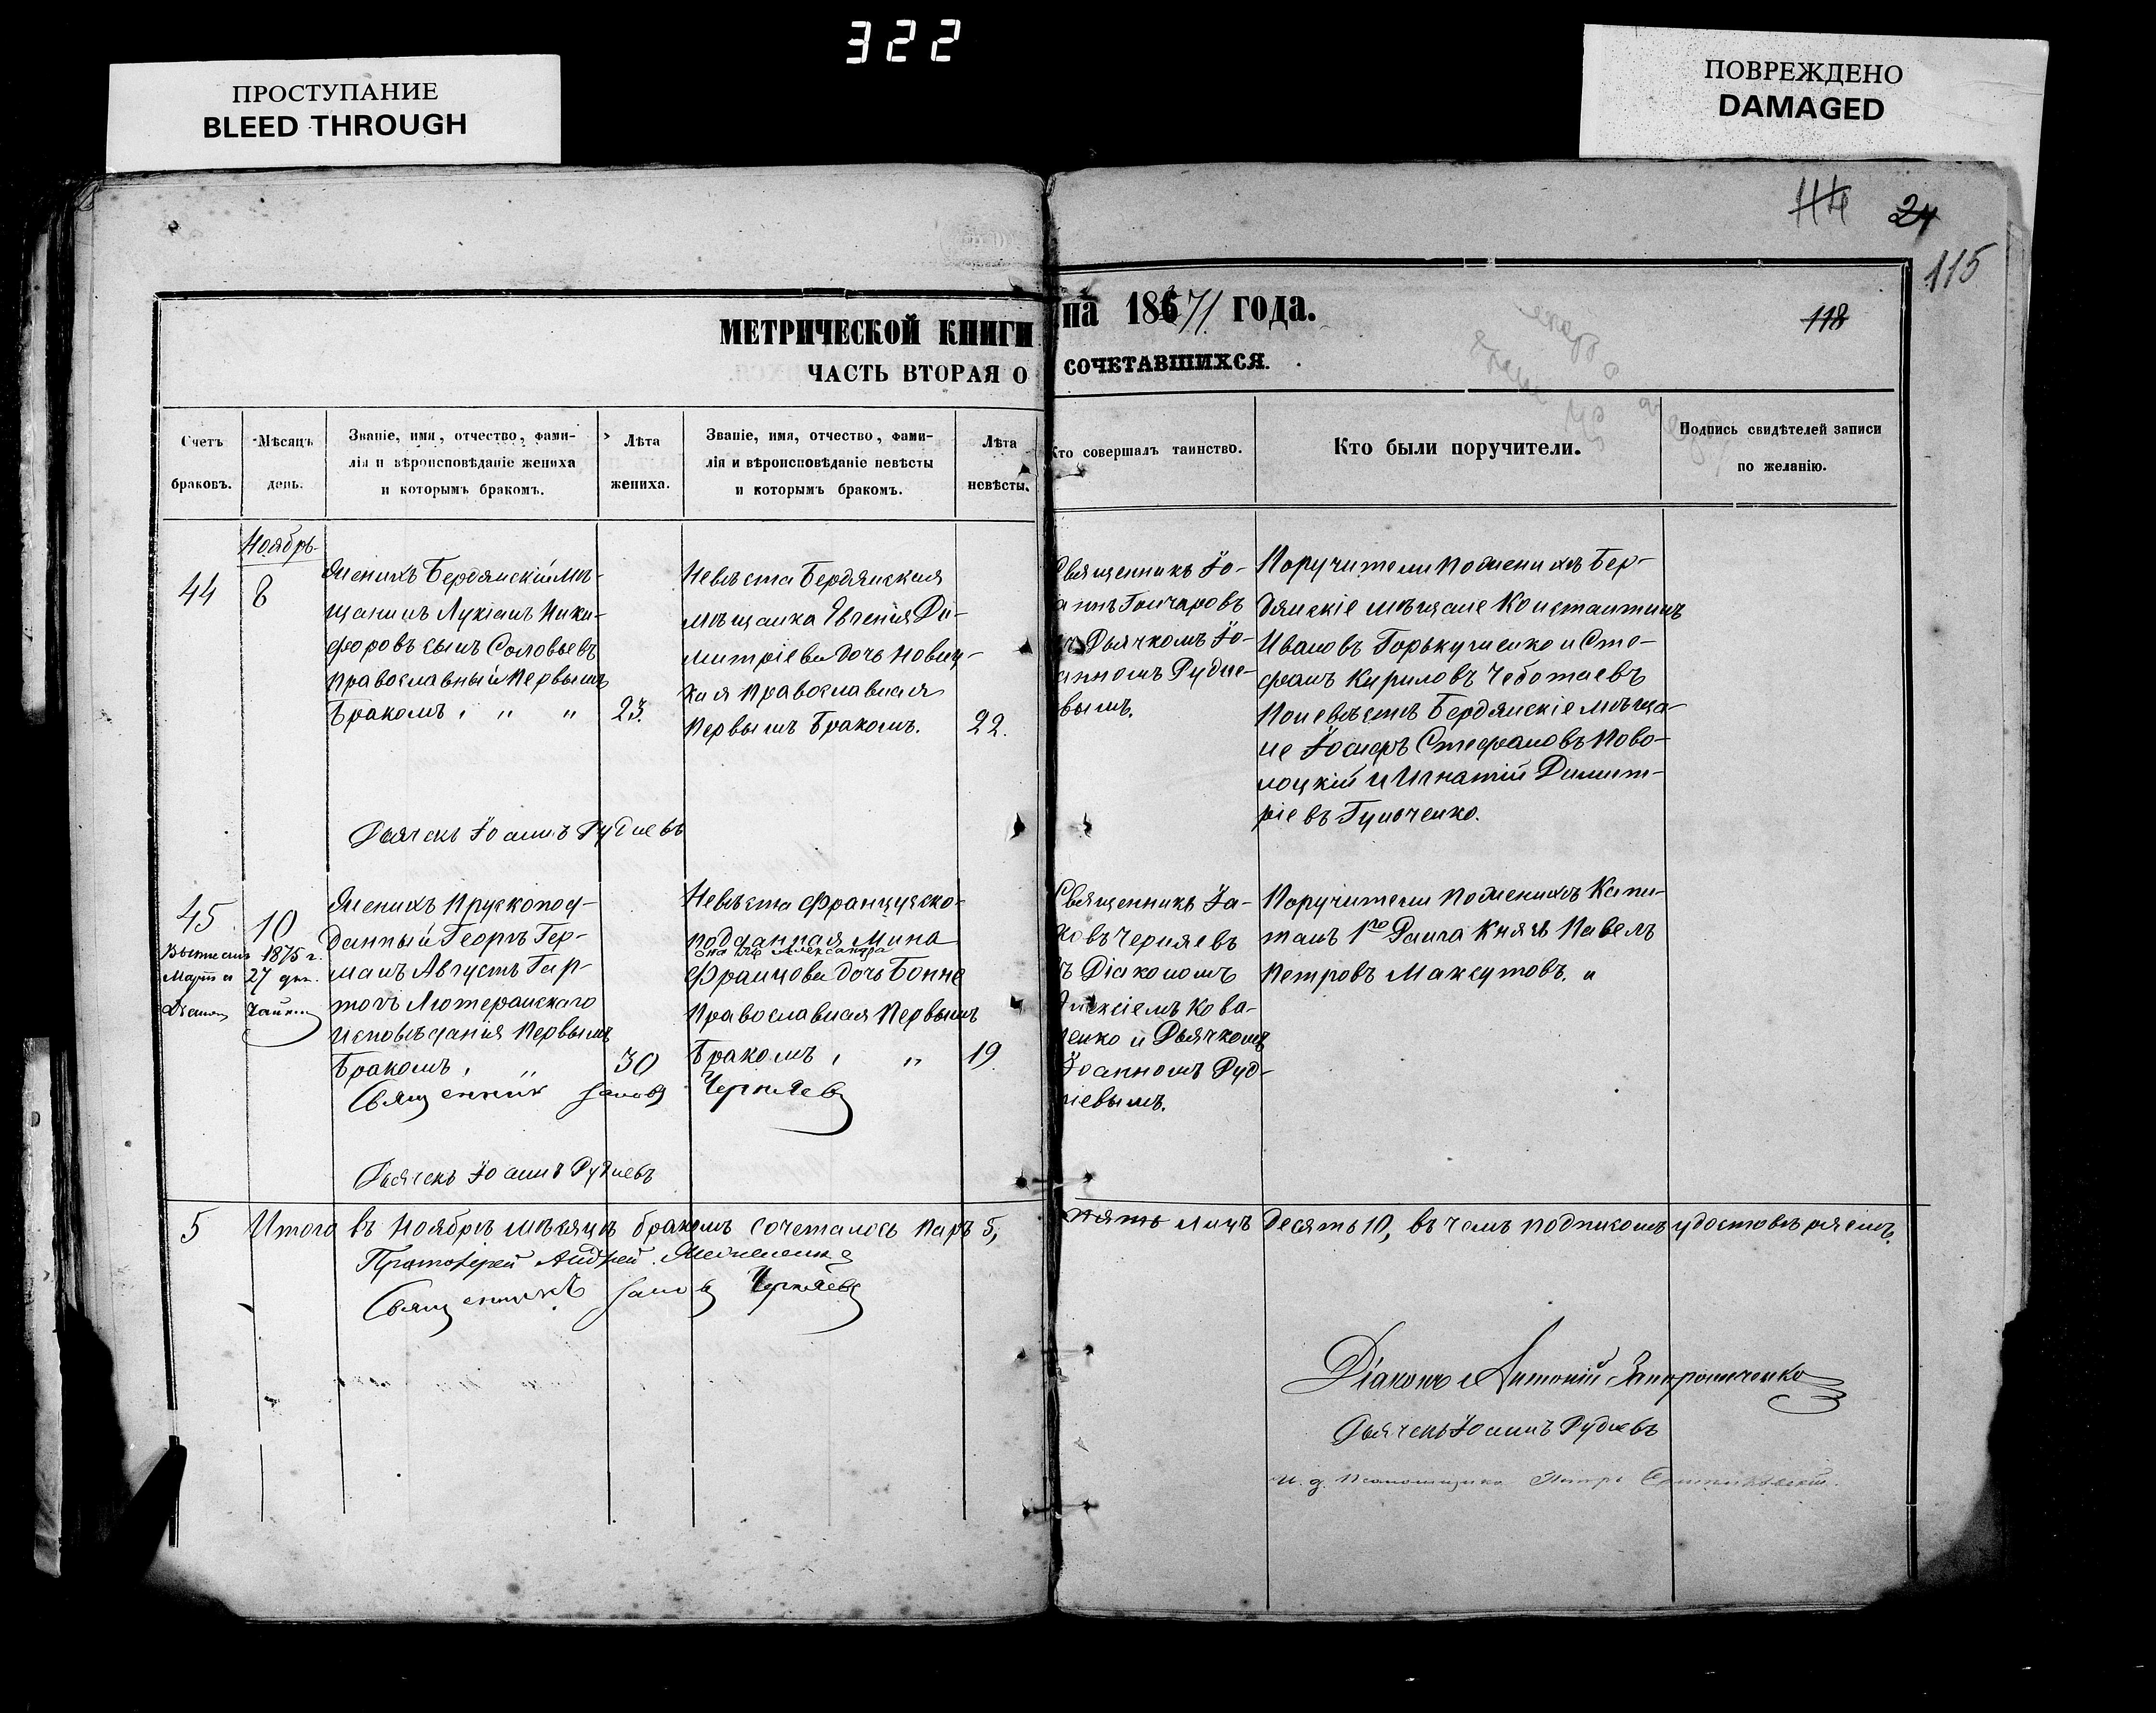 322
ПРОСТУПАНИЕ
BLEED THROUGH
ПОВРЕЖДЕНО
DAMAGED
114 24
115
118
МЕТРИЧЕСКОЙ КНИГИ на 1871 года.
ЧАСТЬ ВТОРАЯ О СОЧЕТАВШИХСЯ.
Счетъ браковъ.
Мѣсяцъ день.
Званіе, имя, отчество, фами-
лія и вѣроисповѣданіе жениха
и которымъ бракомъ.
Лѣта жениха.
Званіе, имя, отчество, фами-
лія и вѣроисповѣданіе невѣсты
и которымъ бракомъ.
Лѣта невѣсты.
Кто совершалъ таинство.
Кто были поручители.
Подпись свидѣтелей записи
по желанію.
Ноябрь
44
8
Женихъ Бердянскій мѣ-
щанинъ Лукіанъ Ники-
форовъ сынъ Соловьевъ
православный первымъ
бракомъ „ „
23.
Невѣста Бердянская
мѣщанка Евгенія Ди-
митріева дочь Новиц-
кая православная
первымъ бракомъ.
22.
Священникъ Іо-
аннъ Гончаровъ
съ Дьячкомъ Іо-
анномъ Рудне-
вымъ.
Поручители по женихѣ Бер-
дянскіе мѣщане Константинъ
Ивановъ Горькушенко и Сте-
фанъ Кириловъ Чеботаевъ
по невѣстѣ Бердянскіе мѣща-
не Іосифъ Стефановъ Ново-
лоцкій и Игнатій Димит-
ріевъ Гуньченко.
Дьячекъ Іоаннъ Рудневъ
45
10
1875 г.
Марта 27 дня.
Женихъ Прускопод-
данный Георгъ Гер-
манъ Августъ Гар-
тохъ Лютеранскаго
исповѣданія первымъ
бракомъ „ „
30
Невѣста Французско-
подданная Мина
она же Александра
Францова дочь Бонне
православная первымъ
бракомъ „ „
19.
Священникъ Іа-
ковъ Черняевъ
съ Діакономъ
Алексіемъ Кова-
ленко и Дьячкомъ
Іоанномъ Руд-
невымъ.
Поручители по женихѣ Капи-
танъ 1го Ранга Князь Павелъ
Петровъ Максутовъ. и
Священникъ Іаковъ Черняевъ
Дьячекъ Іоаннъ Рудневъ
5
Итого въ Ноябрѣ мѣсяцѣ бракомъ сочеталось паръ 5, пять лицъ десять 10, въ чемъ подписомъ удостовѣряемъ.
Протоіерей Андрей
Священникъ Іаковъ Черняевъ
Діаконъ Антоній Запорожченко
Дьячекъ Іоаннъ Рудневъ
И. д. псаломщика Петръ